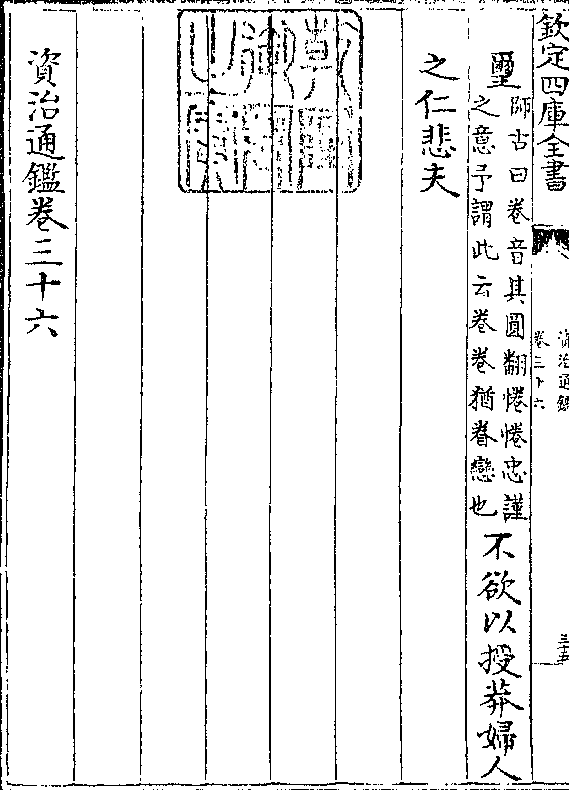 欽定四庫全書
資治通鑑
卷三十六
三十五
璽
師古曰卷音其圓翻惓惓忠謹
之意予謂此云卷卷猶眷戀也
不欲以授莽婦人
之仁悲夫
資治通鑑卷三十六